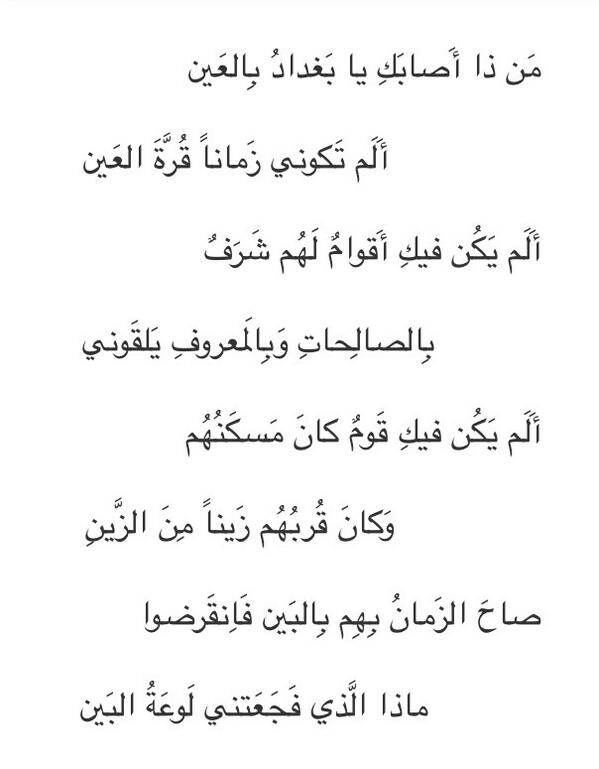 مَن ذا أَصابَكِ يا بَغدادُ بِالعَين
أَلَم تَكوني زَماناً قُرَّةَ العَين
أَلَم يَكُن فيكِ أَقوامٌ لَهُم شَرَفٌ
بِالصالِحاتِ وَبِالمَعروفِ يَلقَوني
أَلَم يَكُن فيكِ قَومٌ كانَ مَسكَنُهُم
وَكانَ قُربُهُم زَيناً مِنَ الزَّينِ
صاحَ الزَمانُ بِهِم بِالبَين فَاِنقَرضوا
ماذا الَّذي فَجَعَتني لَوعَةُ البَين